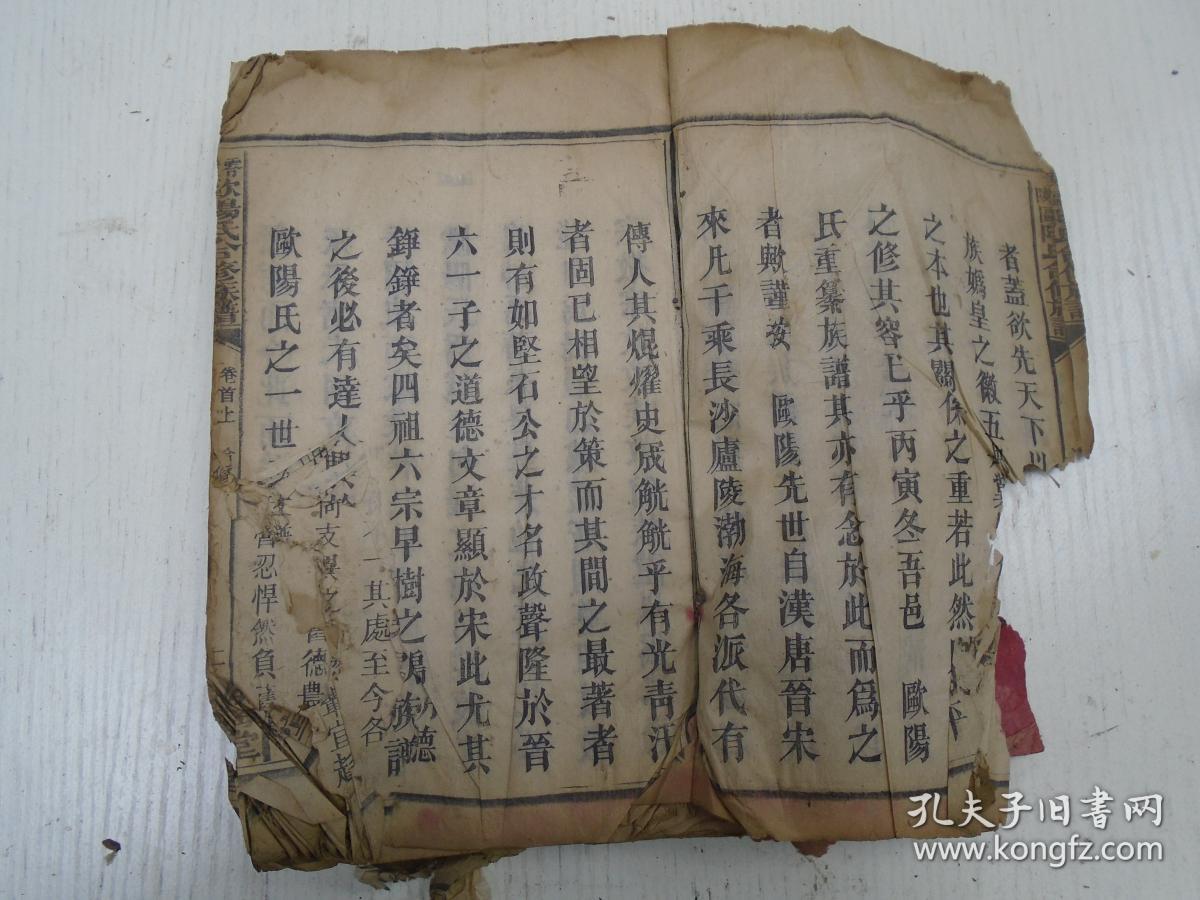 者蓋欲先天下
族嬀皇之徽五
之本也其關係之重若此然
之修其容已乎丙寅冬吾邑 歐陽
氏重纂族譜其亦有念於此而爲之
者歟謹按 歐陽先世自漢唐晉宋
來凡千乘長沙廬陵渤海各派代有
傳人其焜耀史宬觥觥乎有光靑汗
者固已相望於策而其間之最著者
則有如堅石公之才名政聲隆於晉
六一子之道德文章顯於宋此尤其
錚錚者矣四祖六宗早樹之
之後必有達人
歐陽氏之一世
族譜
德
其處至今各
德農
宜
忍悍然負
歐陽氏合修族譜
卷首上
孔夫子旧书网
www.kongfz.com